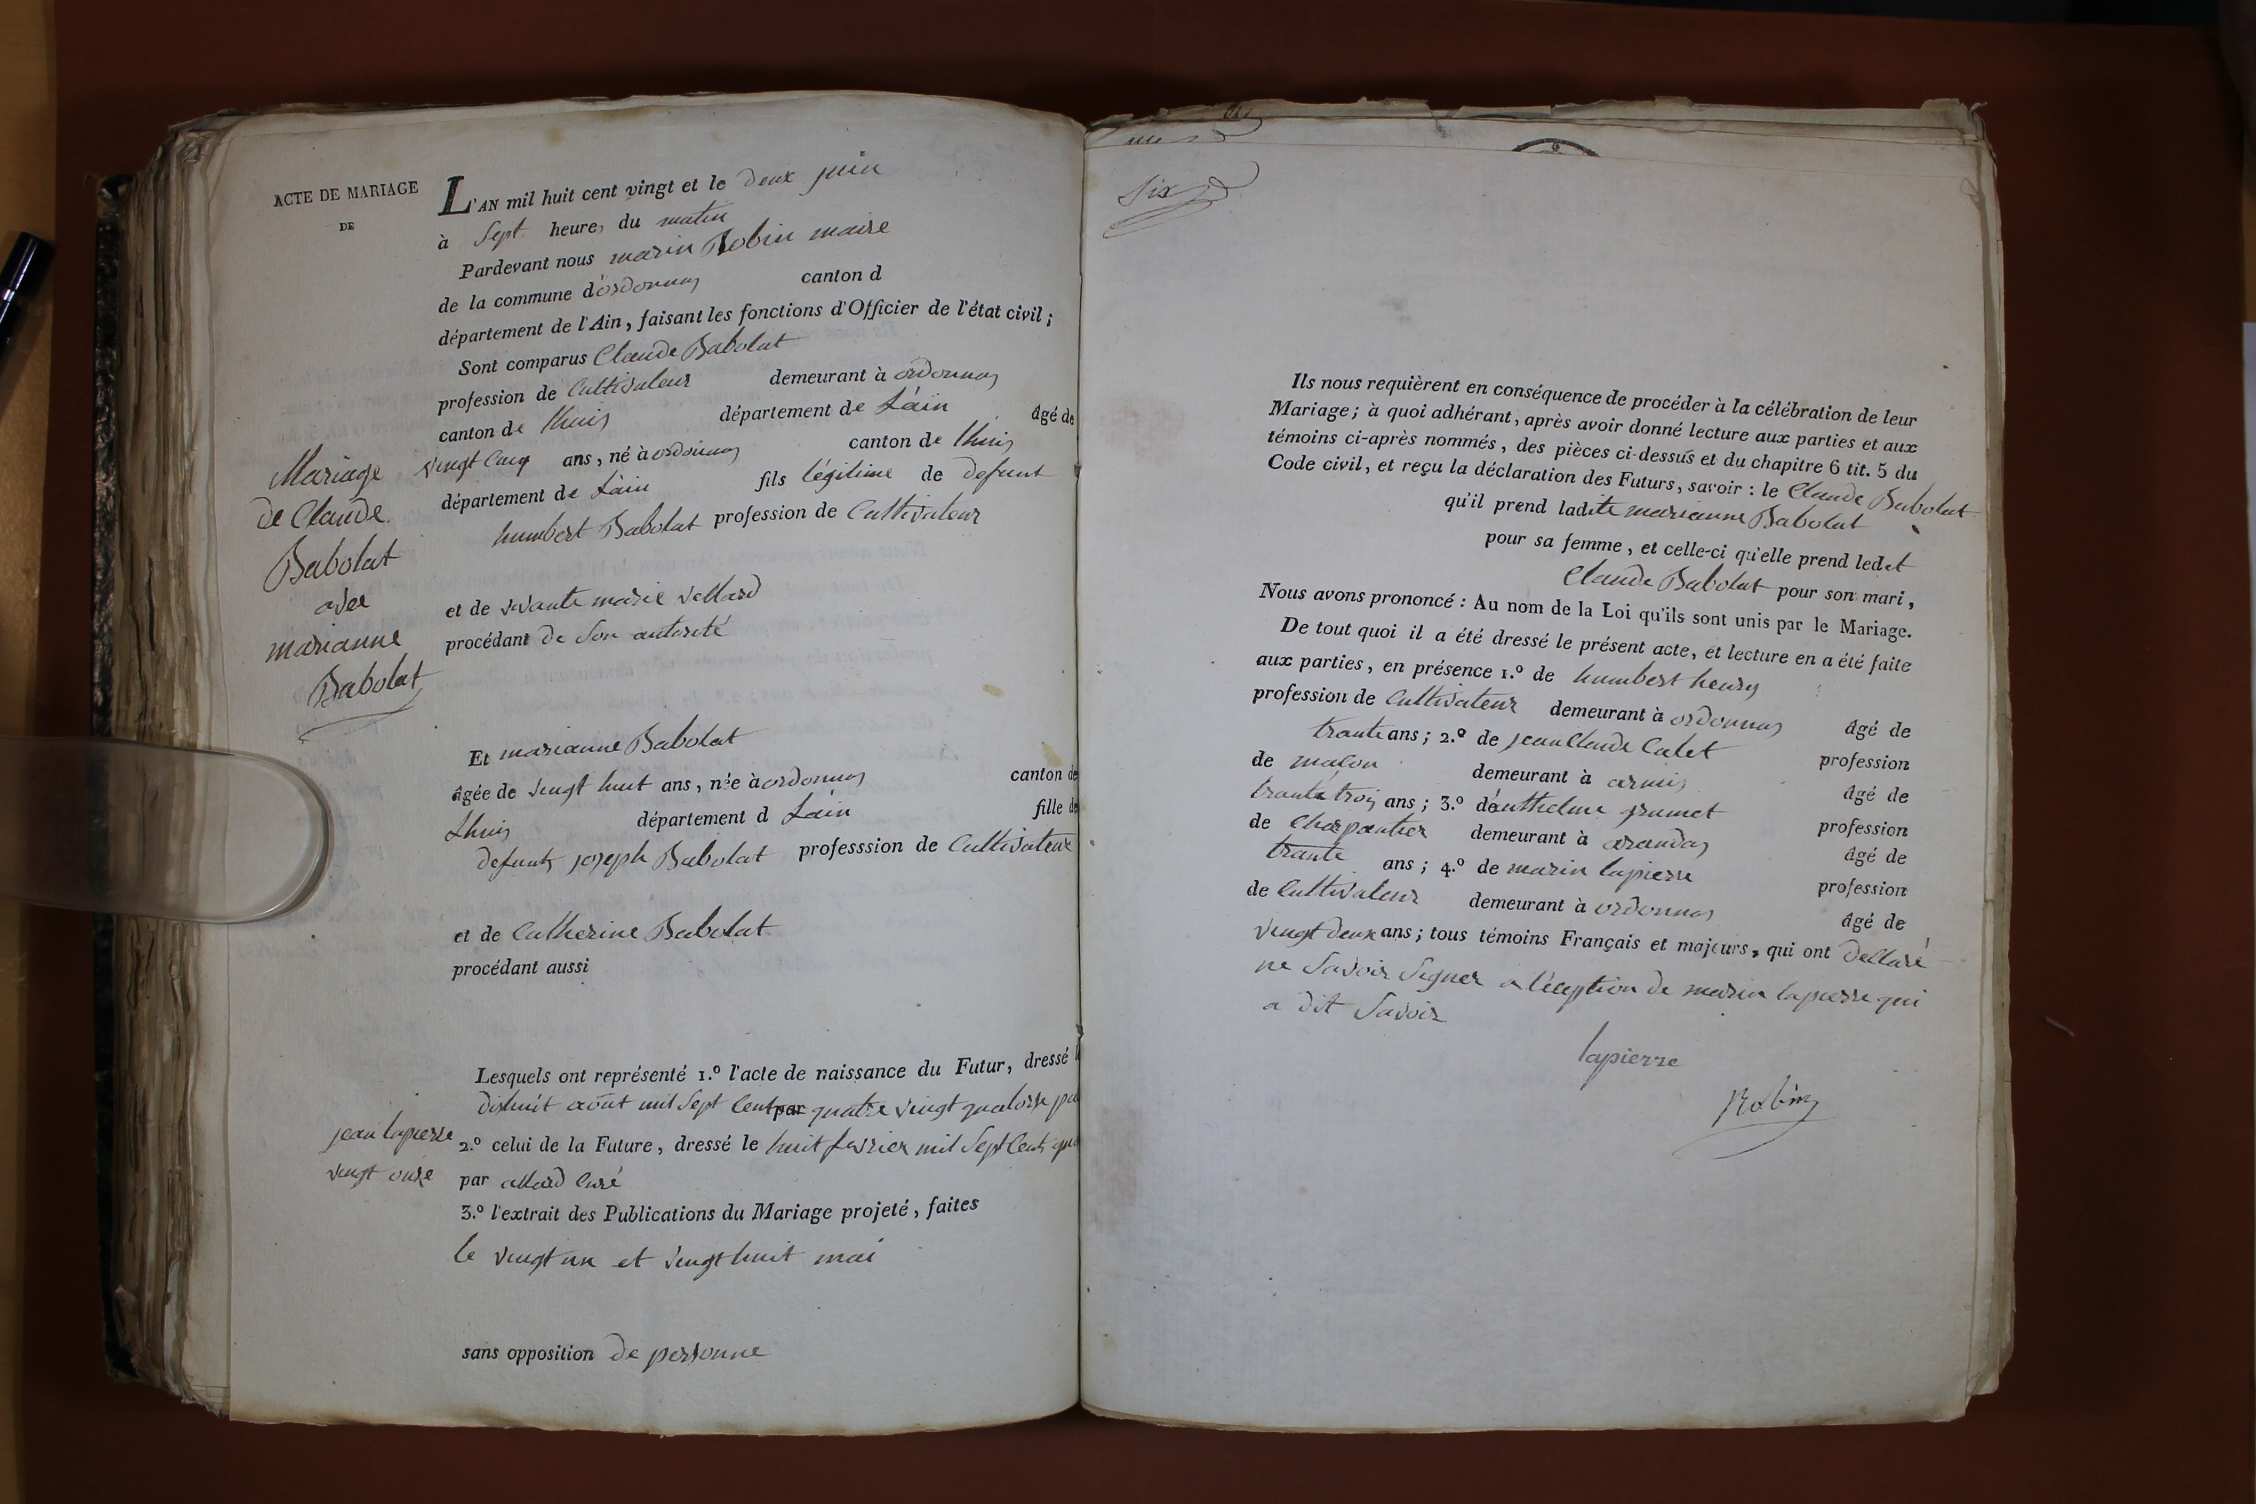 ACTE DE MARIAGE
DE
Mariage
de Claude
Babolat
avec
marianne
Babolat
L'AN mil huit cent vingt et le deux juin
à Sept heures du matin
Pardevant nous marin Robin maire
de la commune d'ordonnas canton d
département de l'Ain, faisant les fonctions d'Officier de l'état civil;
Sont comparus Claude Babolat
profession de Cultivateur demeurant à ordonnas
canton de Lhuis département de L'ain âgé de
vingt cinq ans, né à ordonnas canton de Lhuis
département de L'ain fils légitime de defunt
humbert Babolat profession de Cultivateur
et de vivante marie vellard
procédant de Son autorité
Et marianne Babolat
âgée de vingt huit ans, née à ordonnas canton de
Lhuis département d Lain fille de
defunts joseph Babolat professsion de Cultivateur
et de Catherine Babolat
procédant aussi
Lesquels ont représenté 1.º l'acte de naissance du Futur, dressé l
dixhuit août mil Sept Cent par quatre vingt quatorse pa
jean lapierre 2.º celui de la Future, dressé le huit fevrier mil Sept Cent qua
vingt onse par allard Curé
3.º l'extrait des Publications du Mariage projeté, faites
le vingt un et vingt huit mai
sans opposition de personne
Six
Ils nous requièrent en conséquence de procéder à la célébration de leur
Mariage; à quoi adhérant, après avoir donné lecture aux parties et aux
témoins ci-après nommés, des pièces ci-dessus et du chapitre 6 tit. 5 du
Code civil, et reçu la déclaration des Futurs, savoir : le Claude Babolat
qu'il prend ladite marianne Babolat
pour sa femme, et celle-ci qu'elle prend ledet
Claude Babolat pour son mari,
Nous avons prononcé : Au nom de la Loi qu'ils sont unis par le Mariage.
De tout quoi il a été dressé le présent acte, et lecture en a été faite
aux parties, en présence 1.º de humbert henry
profession de Cultivateur demeurant à ordonnas âgé de
trante ans; 2.º de jean Claude Calet profession
de macon demeurant à armis âgé de
trante trois ans; 3.º d'anthelme grumet profession
de Charpantier demeurant à arandas âgé de
trante ans; 4.º de marin lapierre profession
de Cultivateur demeurant à ordonnas âgé de
vingt deux ans; tous témoins Français et majeurs, qui ont dellaré
ne Savoir Signer a l'éception de marin lapierre qui
a dit Savoir
lapierre
Robin